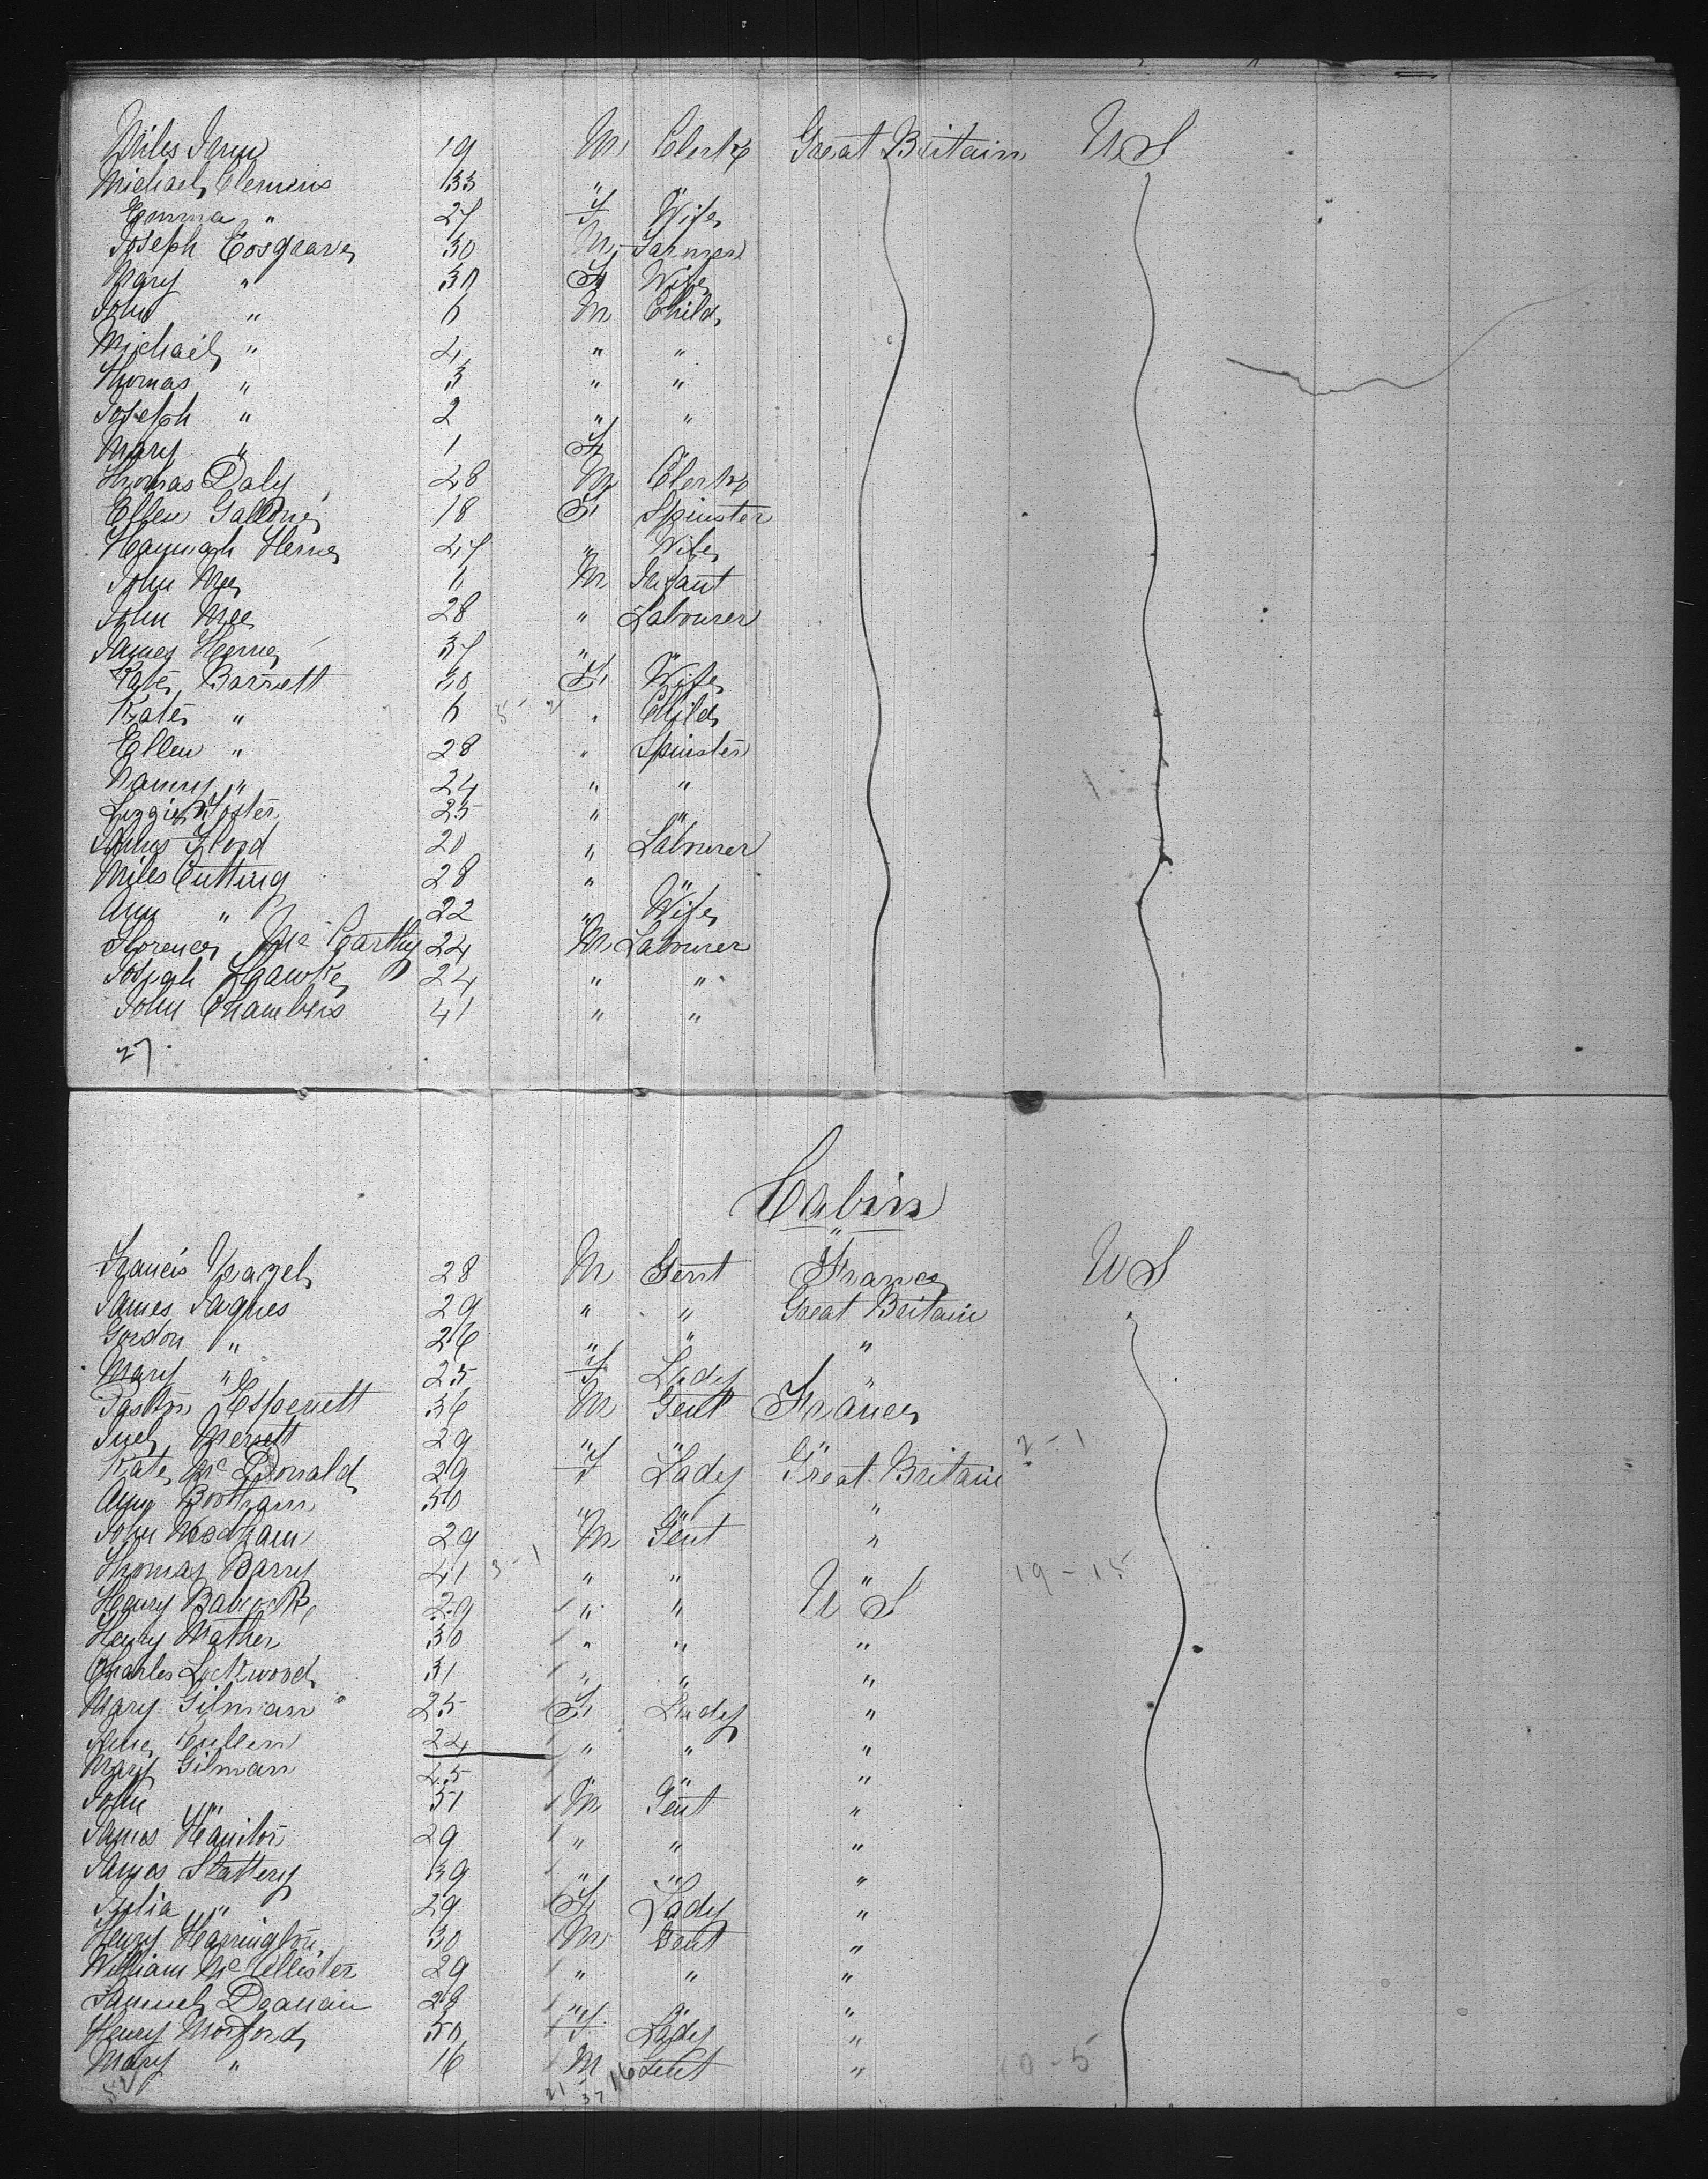 Miles 19 M Clerk Great Britain U S
Michael Clemens 33 " "
Emma " 27 F Wife
Joseph Cosgrave 30 M Farmer
Mary " 30 F Wife
John " 6 M Child
Michael " 4 " "
Thomas " 3 " "
Joseph " 2 " "
Mary " 1 F "
Thomas Daly 28 M Clerk
Ellen 18 F Spinster
Hannah Herne 27 " Wife
John Mee M Infant
John Mee 28 " Labourer
James Herne 37 " "
Kate Barrett 30 F Wife
Kate " 6 " Child
Ellen " 28 " Spinster
Nanny " 24 " "
Lizzie Foster 25 " "
James Flood 20 " Labourer
Miles Cutting 28 " "
Ann " 22 " Wife
Florence McCarthy 24 M Labourer
Joseph 24 " "
John Chambers 41 " "
27
Cabin
"
Francis 28 M Gent France U S
James Jaques 29 " " Great Britain
Gordon " 26 " " "
Mary " 25 F Lady "
Espenett 36 M Gent France
29 " " " 2-1
Kate McDonald 29 F Lady Great Britain
Amy Bootham 30 " " "
John Woodham 29 M Gent "
Thomas Barry 41 3-1 " " " 19-15
Henry Babcock 29 " " U S
Henry Mather 30 " " "
Charles Lockwood 31 " " "
Mary Gilman 25 F Lady "
Cullen 24 " " "
Mary Gilman 25 " " "
John " 31 M Gent "
James 29 " " "
James Slattery 39 " " "
Julia " 29 F Lady "
Henry Harrington 30 M Gent "
William McAllister 29 " " "
Samuel 28 " " "
Henry Morford 50 F Lady "
Mary " 16 M Gent " 10-5
52 21 37 16